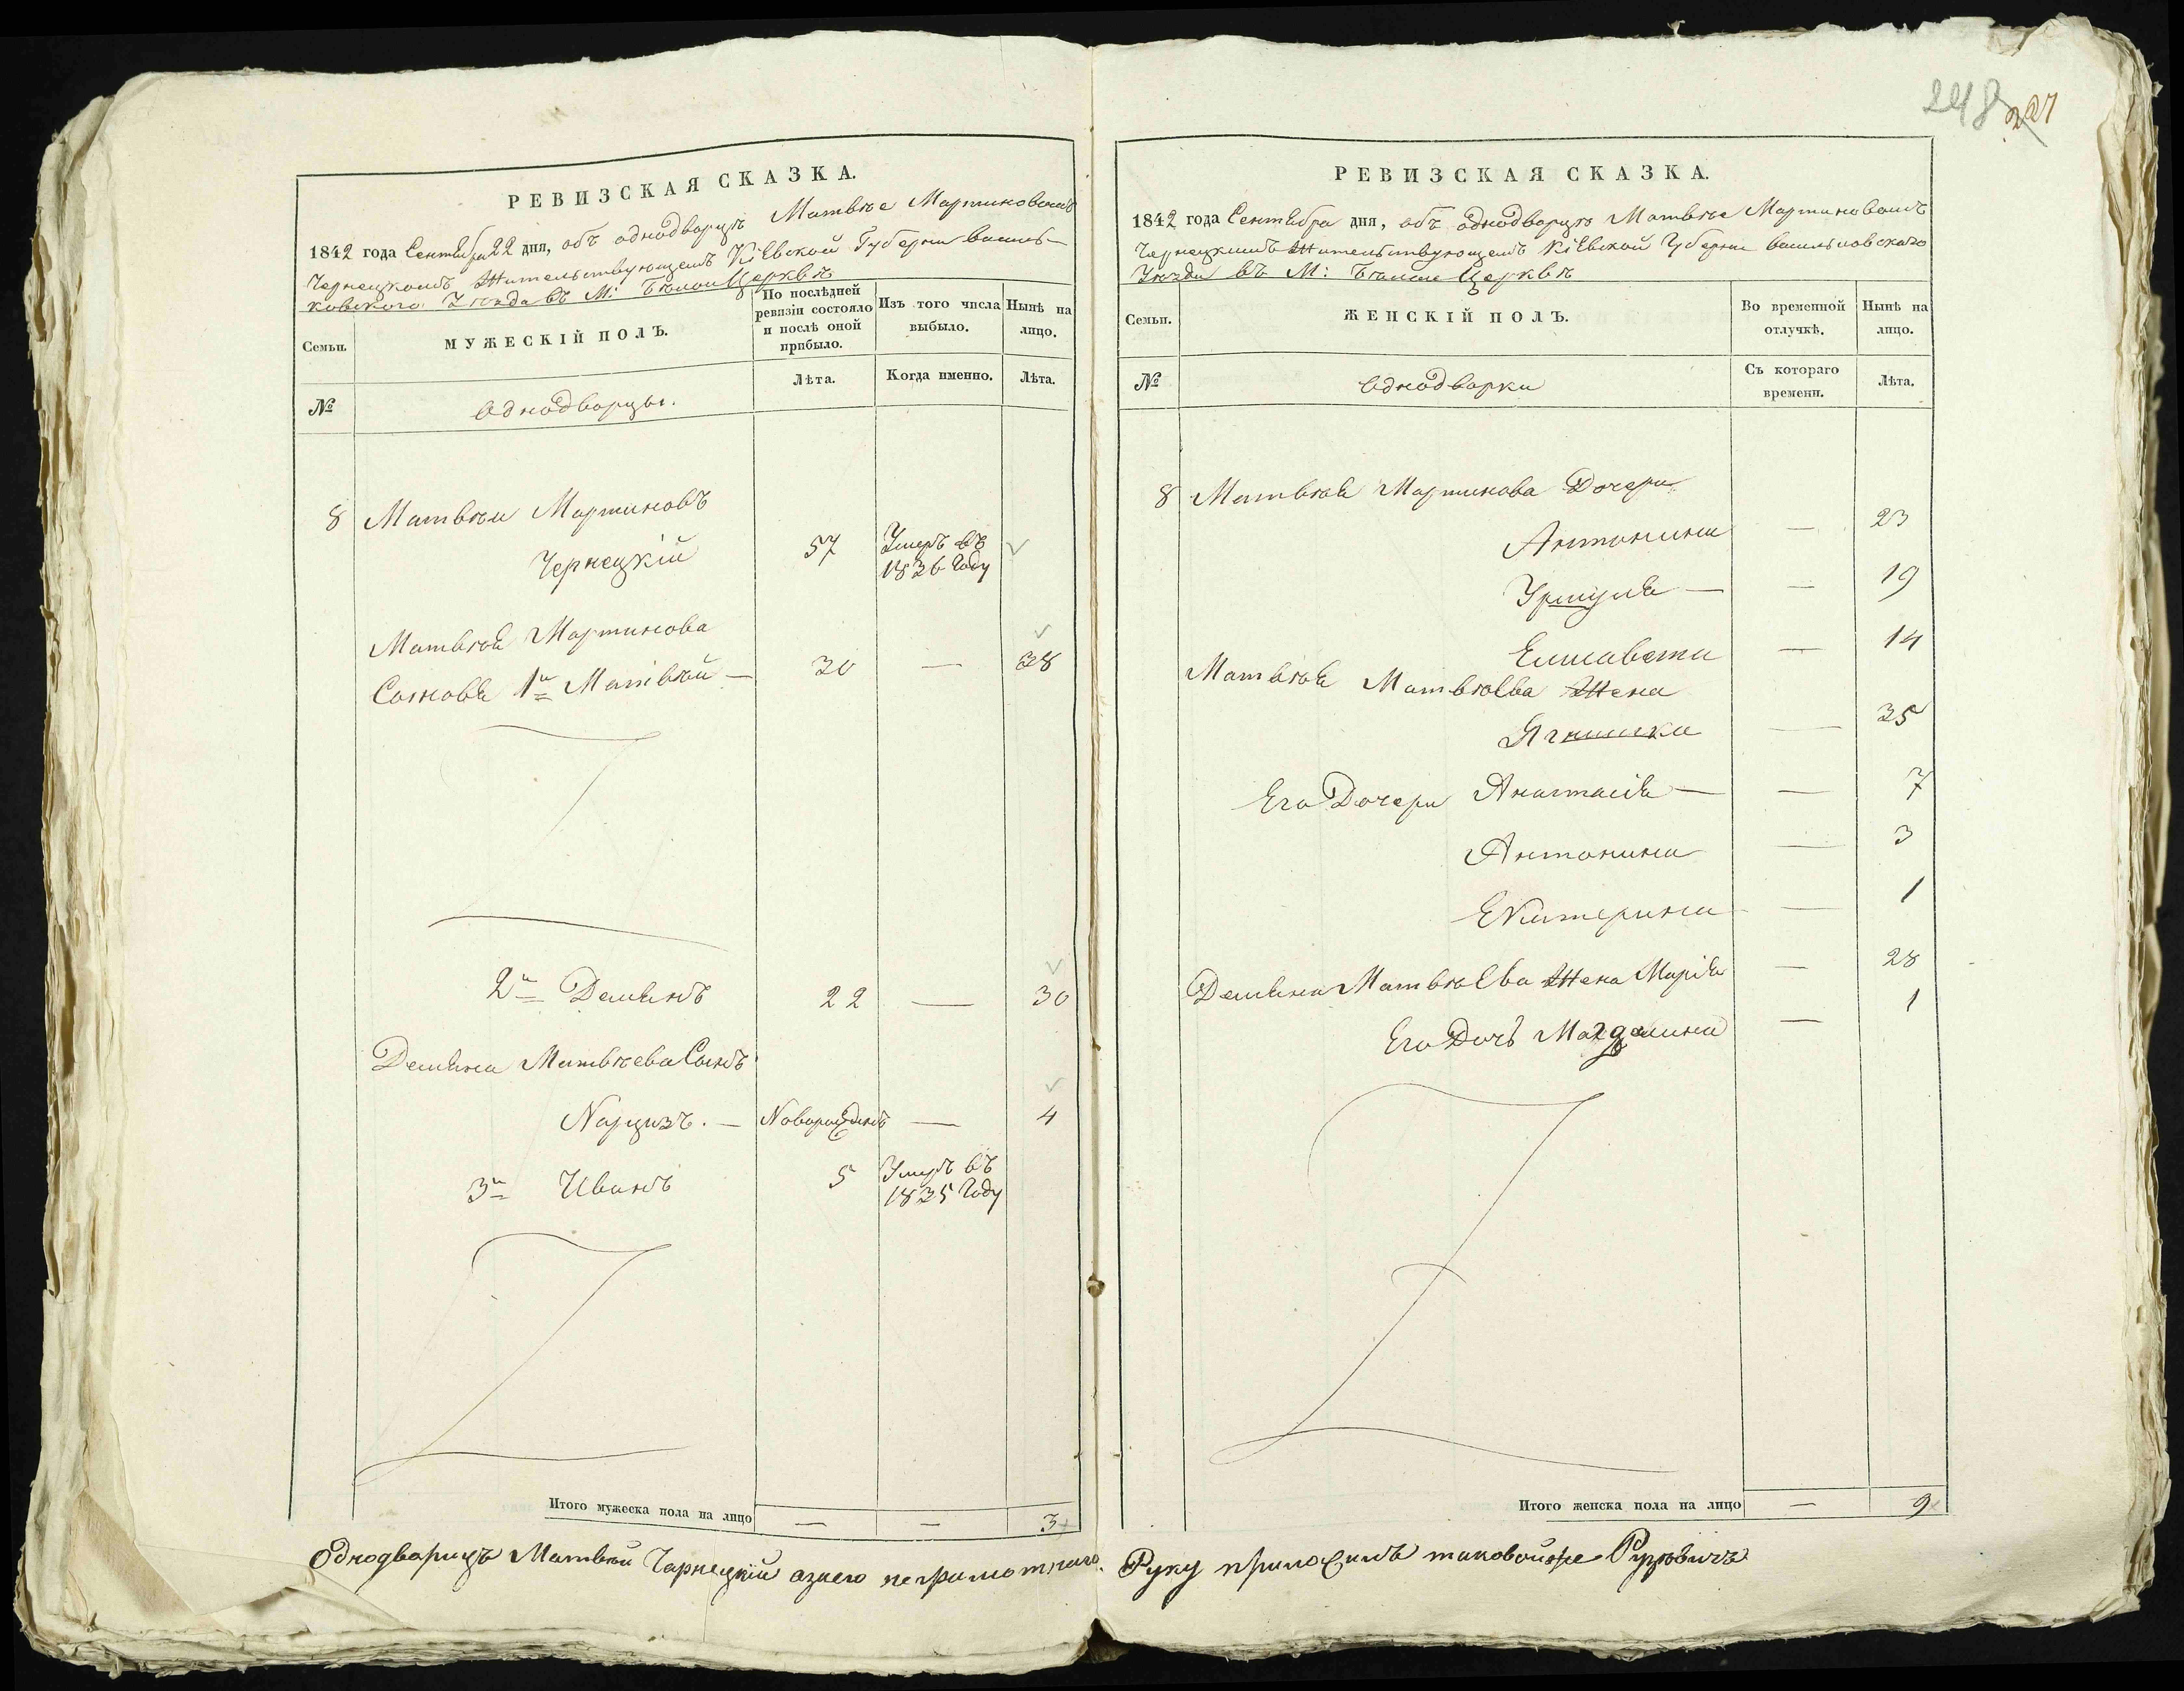 248 227
РЕВИЗСКАЯ СКАЗКА.
1842 года Сентября 22 дня, объ однодворцѣ Матвѣе Мартиновомъ
Чернецкомъ Жительствующемъ Кіевской Губерни Василь-
ковского Уѣзда въ М: Бѣлой Церквѣ
Семьи.
МУЖЕСКІЙ ПОЛЪ.
По послѣдней
ревизіи состояло
и послѣ оной
прибыло.
Изъ того числа
выбыло.
Нынѣ на
лицо.
№
Однодворцы.
Лѣта.
Когда именно.
Лѣта.
8 Матвѣй Мартиновъ
Чернецкій 57 Умеръ въ
1836 Году
Матвѣя Мартинова
Сыновя 1й Матвѣй — 30 — 38
2й Демянъ 22 — 30
Демяна Матвѣева Сынъ
Нарцизъ. — Новорожденъ — 4
3й Иванъ 5 Умеръ въ
1835 Году
Итого мужеска пола на лицо — — 3
Однодворецъ Матвѣй Чарнецкій азанего неграмотного
РЕВИЗСКАЯ СКАЗКА.
1842 года Сентября дня, объ однодворцѣ Матвѣе Мартиновомъ
Чернецкимъ Жительствующемъ Кіевской Губерни Васильковского
Уѣзда въ М: Бѣлой Церквѣ
Семьи.
ЖЕНСКІЙ ПОЛЪ.
Во временной
отлучкѣ.
Нынѣ на
лицо.
№
Однодворки
Съ котораго
времени.
Лѣта.
8 Матвѣя Мартинова Дочери
Антонина — 23
Уршуля — — 19
Елисавета — 14
Матвѣя Матвѣева Жена
Ягнишка — 35
Его Дочери Анастасія — — 7
Антонина — 3
Екатерина — 1
Демяна Матвѣева Жена Марія — 28
Его Дочь Магдалина — 1
Итого женска пола на лицо — 9
Руку приложилъ таковойже